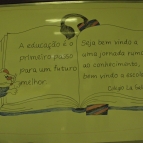 A educação é o
primeiro passo
para um futuro
melhor.
Seja bem vindo a
uma jornada rumo
ao conhecimento,
bem vindo a escola